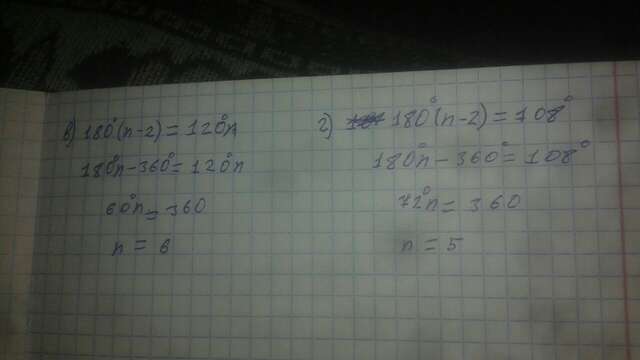 в) 180°(n-2) = 120°n
180°n-360° = 120°n
60°n = 360
n = 6
г) 180°(n-2) = 108°
180°n - 360° = 108°
72°n = 360
n = 5